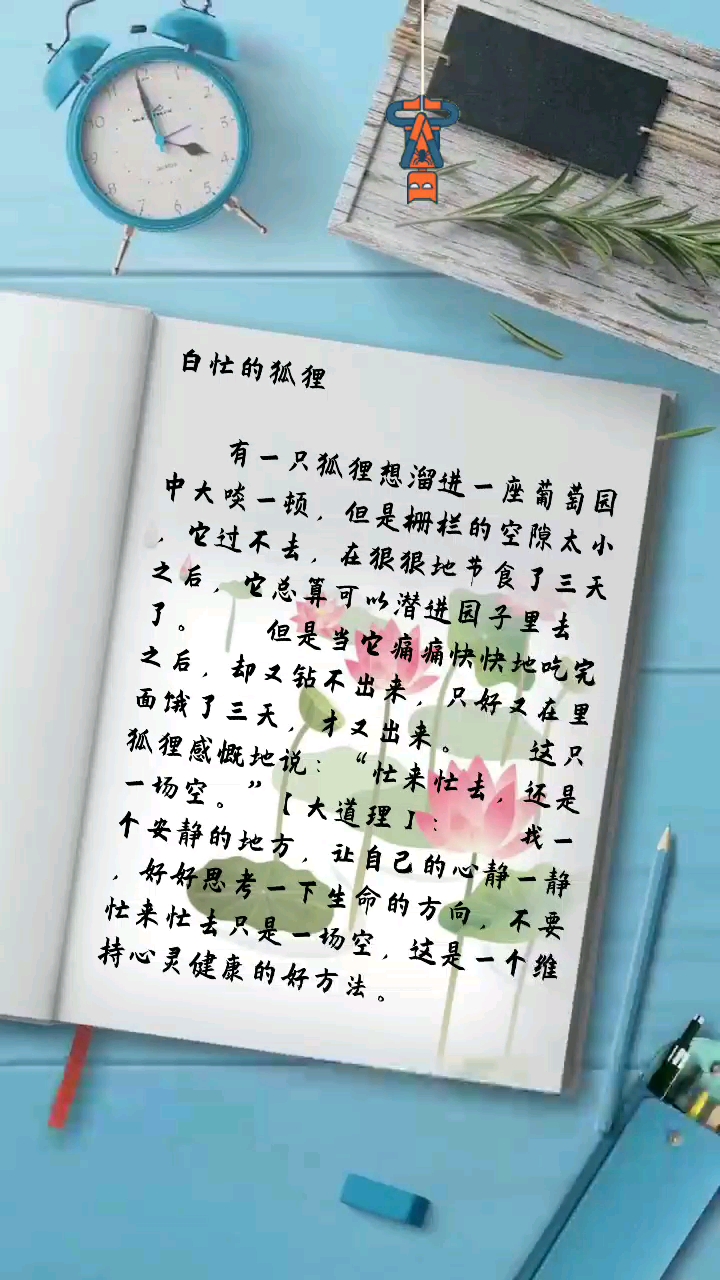 白忙的狐狸
有一只狐狸想溜进一座葡萄园
中大啖一顿，但是栅栏的空隙太小
，它过不去，在狠狠地节食了三天
之后，它总算可以潜进园子里去
了。 但是当它痛痛快快地吃完
之后，却又钻不出来，只好又在里
面饿了三天，才又出来。 这只
狐狸感慨地说：“忙来忙去，还是
一场空。”【大道理】： 找一
个安静的地方，让自己的心静一静
，好好思考一下生命的方向，不要
忙来忙去只是一场空，这是一个维
持心灵健康的好方法。